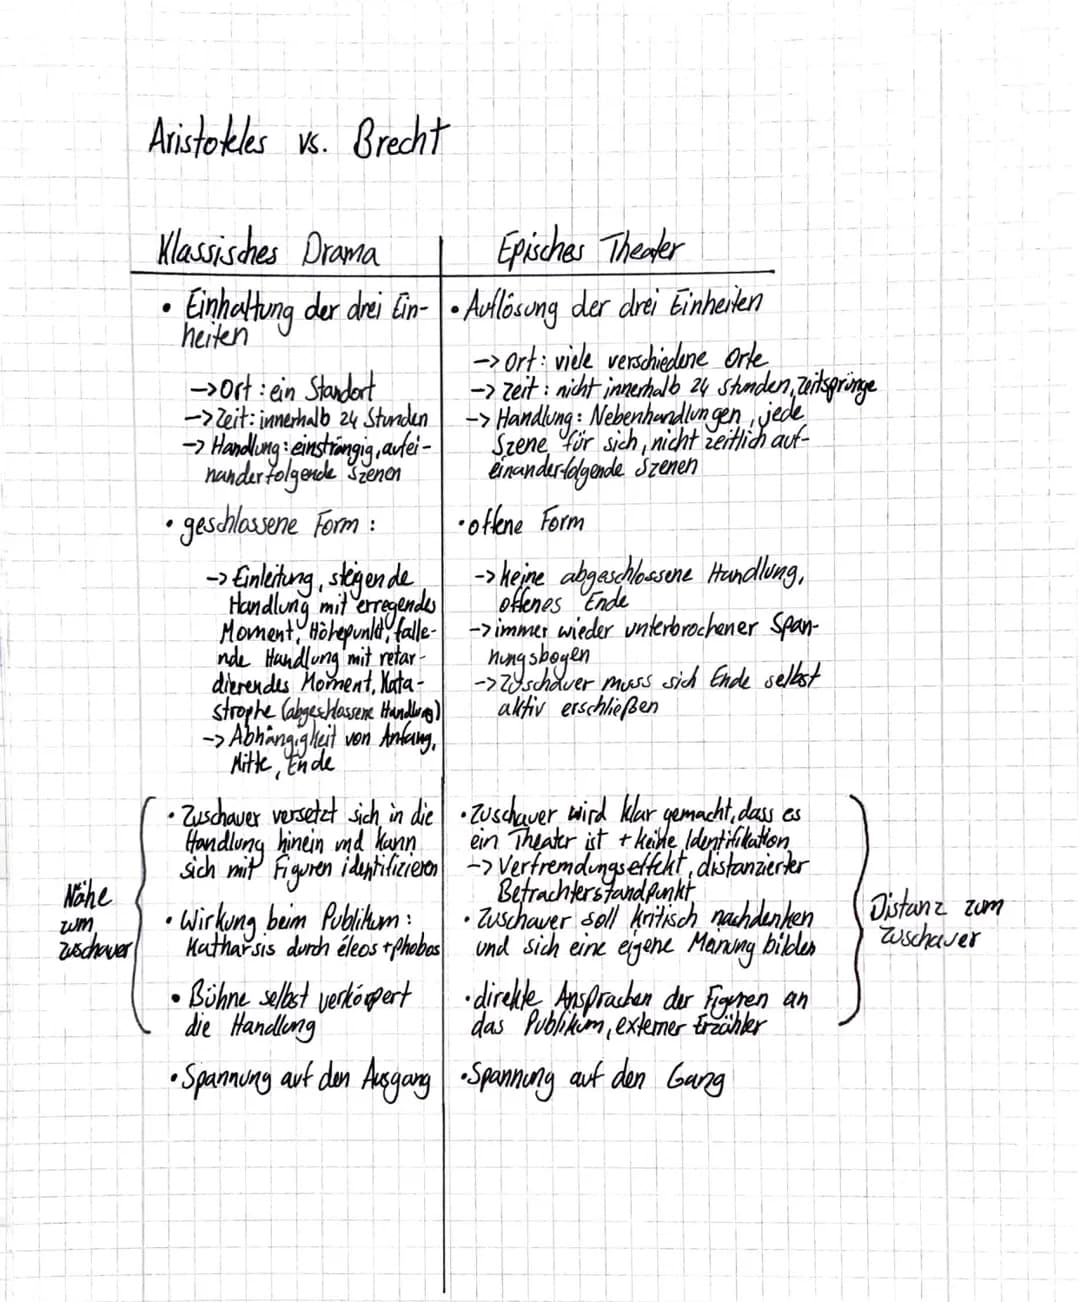 Aristoteles vs. Brecht
Klassisches Drama
• Einhaltung der drei Ein-
heiten
-> Ort: ein Standort
-> Zeit: innerhalb 24 Stunden
-> Handlung: einsträngig, aufei-
nanderfolgende Szenen
• geschlossene Form:
-> Einleitung, steigende
Handlung mit erregendes
Moment, Höhepunkt, falle-
nde Handlung mit retar-
dierendes Moment, Kata-
strophe (abgeschlossene Handlung)
-> Abhängigkeit von Anfang,
Mitte, Ende
Nähe
zum
Zuschauer
• Zuschauer versetzt sich in die
Handlung hinein und kann
sich mit Figuren identifizieren
• Wirkung beim Publikum:
Katharsis durch éleos + phobos
• Bühne selbst verkörpert
die Handlung
• Spannung auf den Ausgang
Episches Theater
• Auflösung der drei Einheiten
-> Ort: viele verschiedene Orte
-> Zeit: nicht innerhalb 24 Stunden, Zeitsprünge
-> Handlung: Nebenhandlungen, jede
Szene für sich, nicht zeitlich auf-
einanderfolgende Szenen
• offene Form
-> keine abgeschlossene Handlung,
offenes Ende
-> immer wieder unterbrochener Span-
nungsbogen
-> Zuschauer muss sich Ende selbst
aktiv erschließen
• Zuschauer wird klar gemacht, dass es
ein Theater ist + keine Identifikation
-> Verfremdungseffekt, distanzierter
Betrachterstandpunkt
• Zuschauer soll kritisch nachdenken
und sich eine eigene Meinung bilden
• direkte Ansprachen der Figuren an
das Publikum, externer Erzähler
• Spannung auf den Gang
Distanz zum
Zuschauer